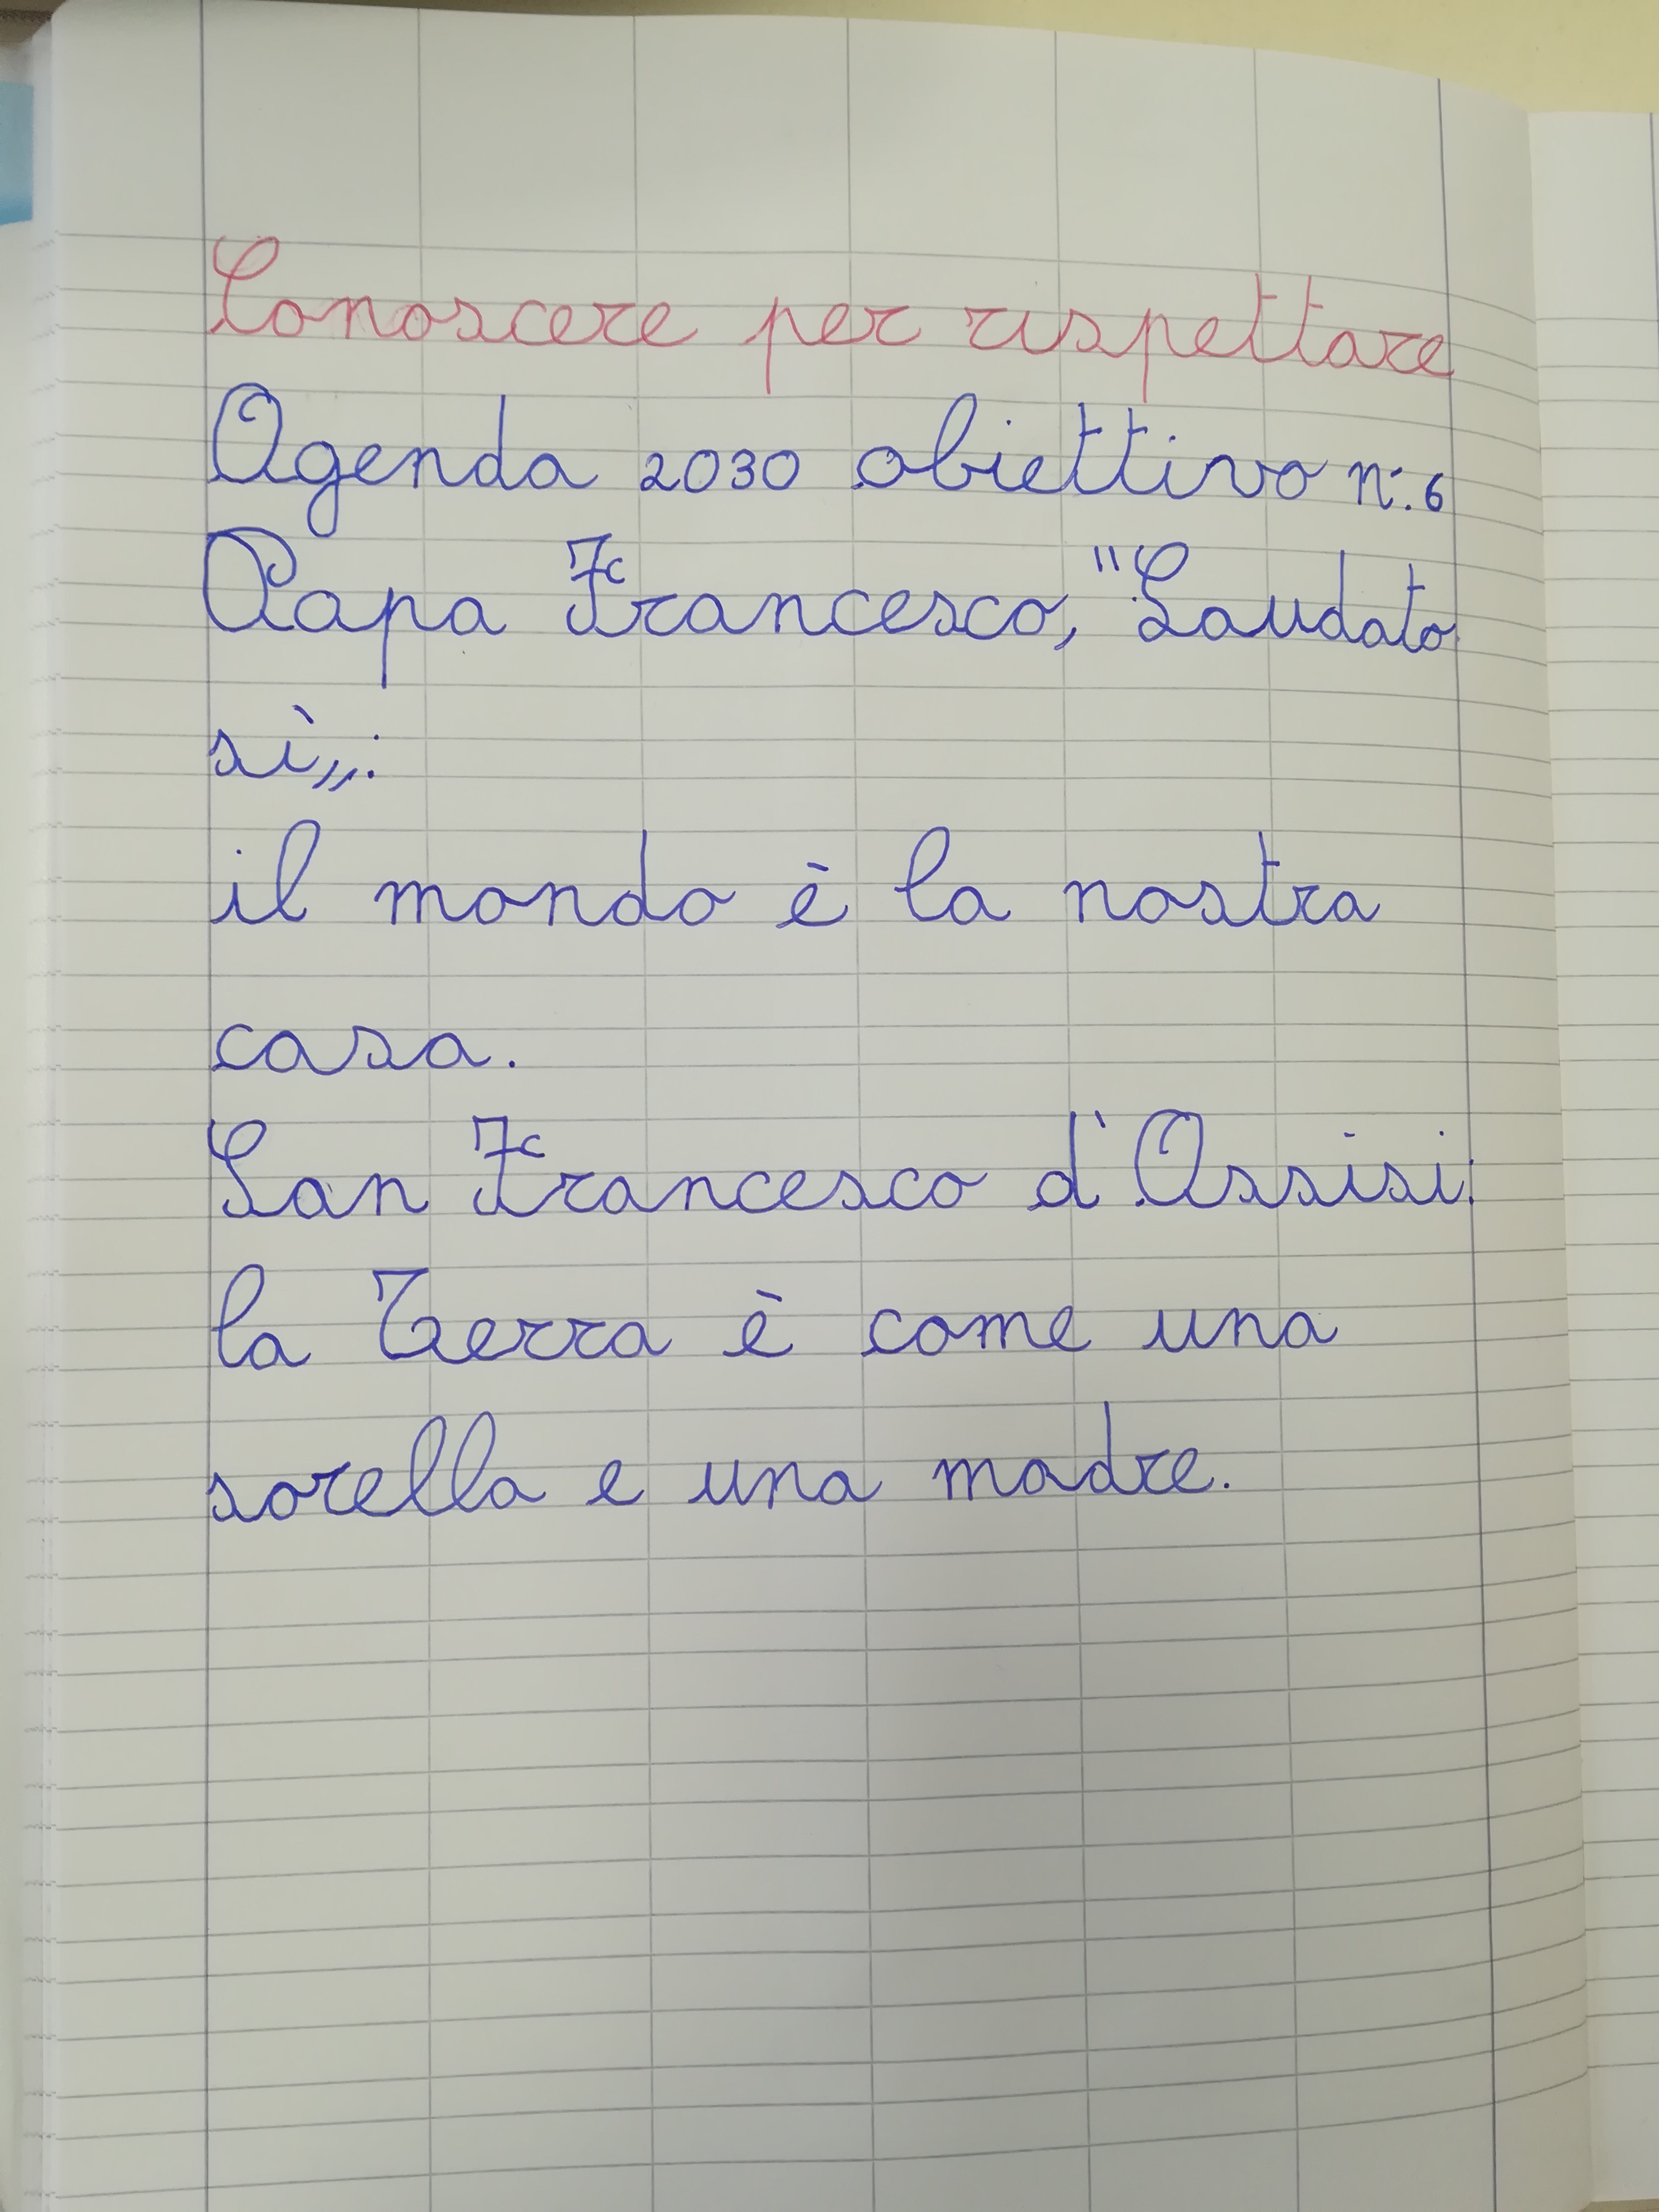 Conoscere per rispettare
Agenda 2030 obiettivo n°.6
Papa Francesco, "Laudato
sì„:
il mondo è la nostra
casa.
San Francesco d'Assisi:
la Terra è come una
sorella e una madre.